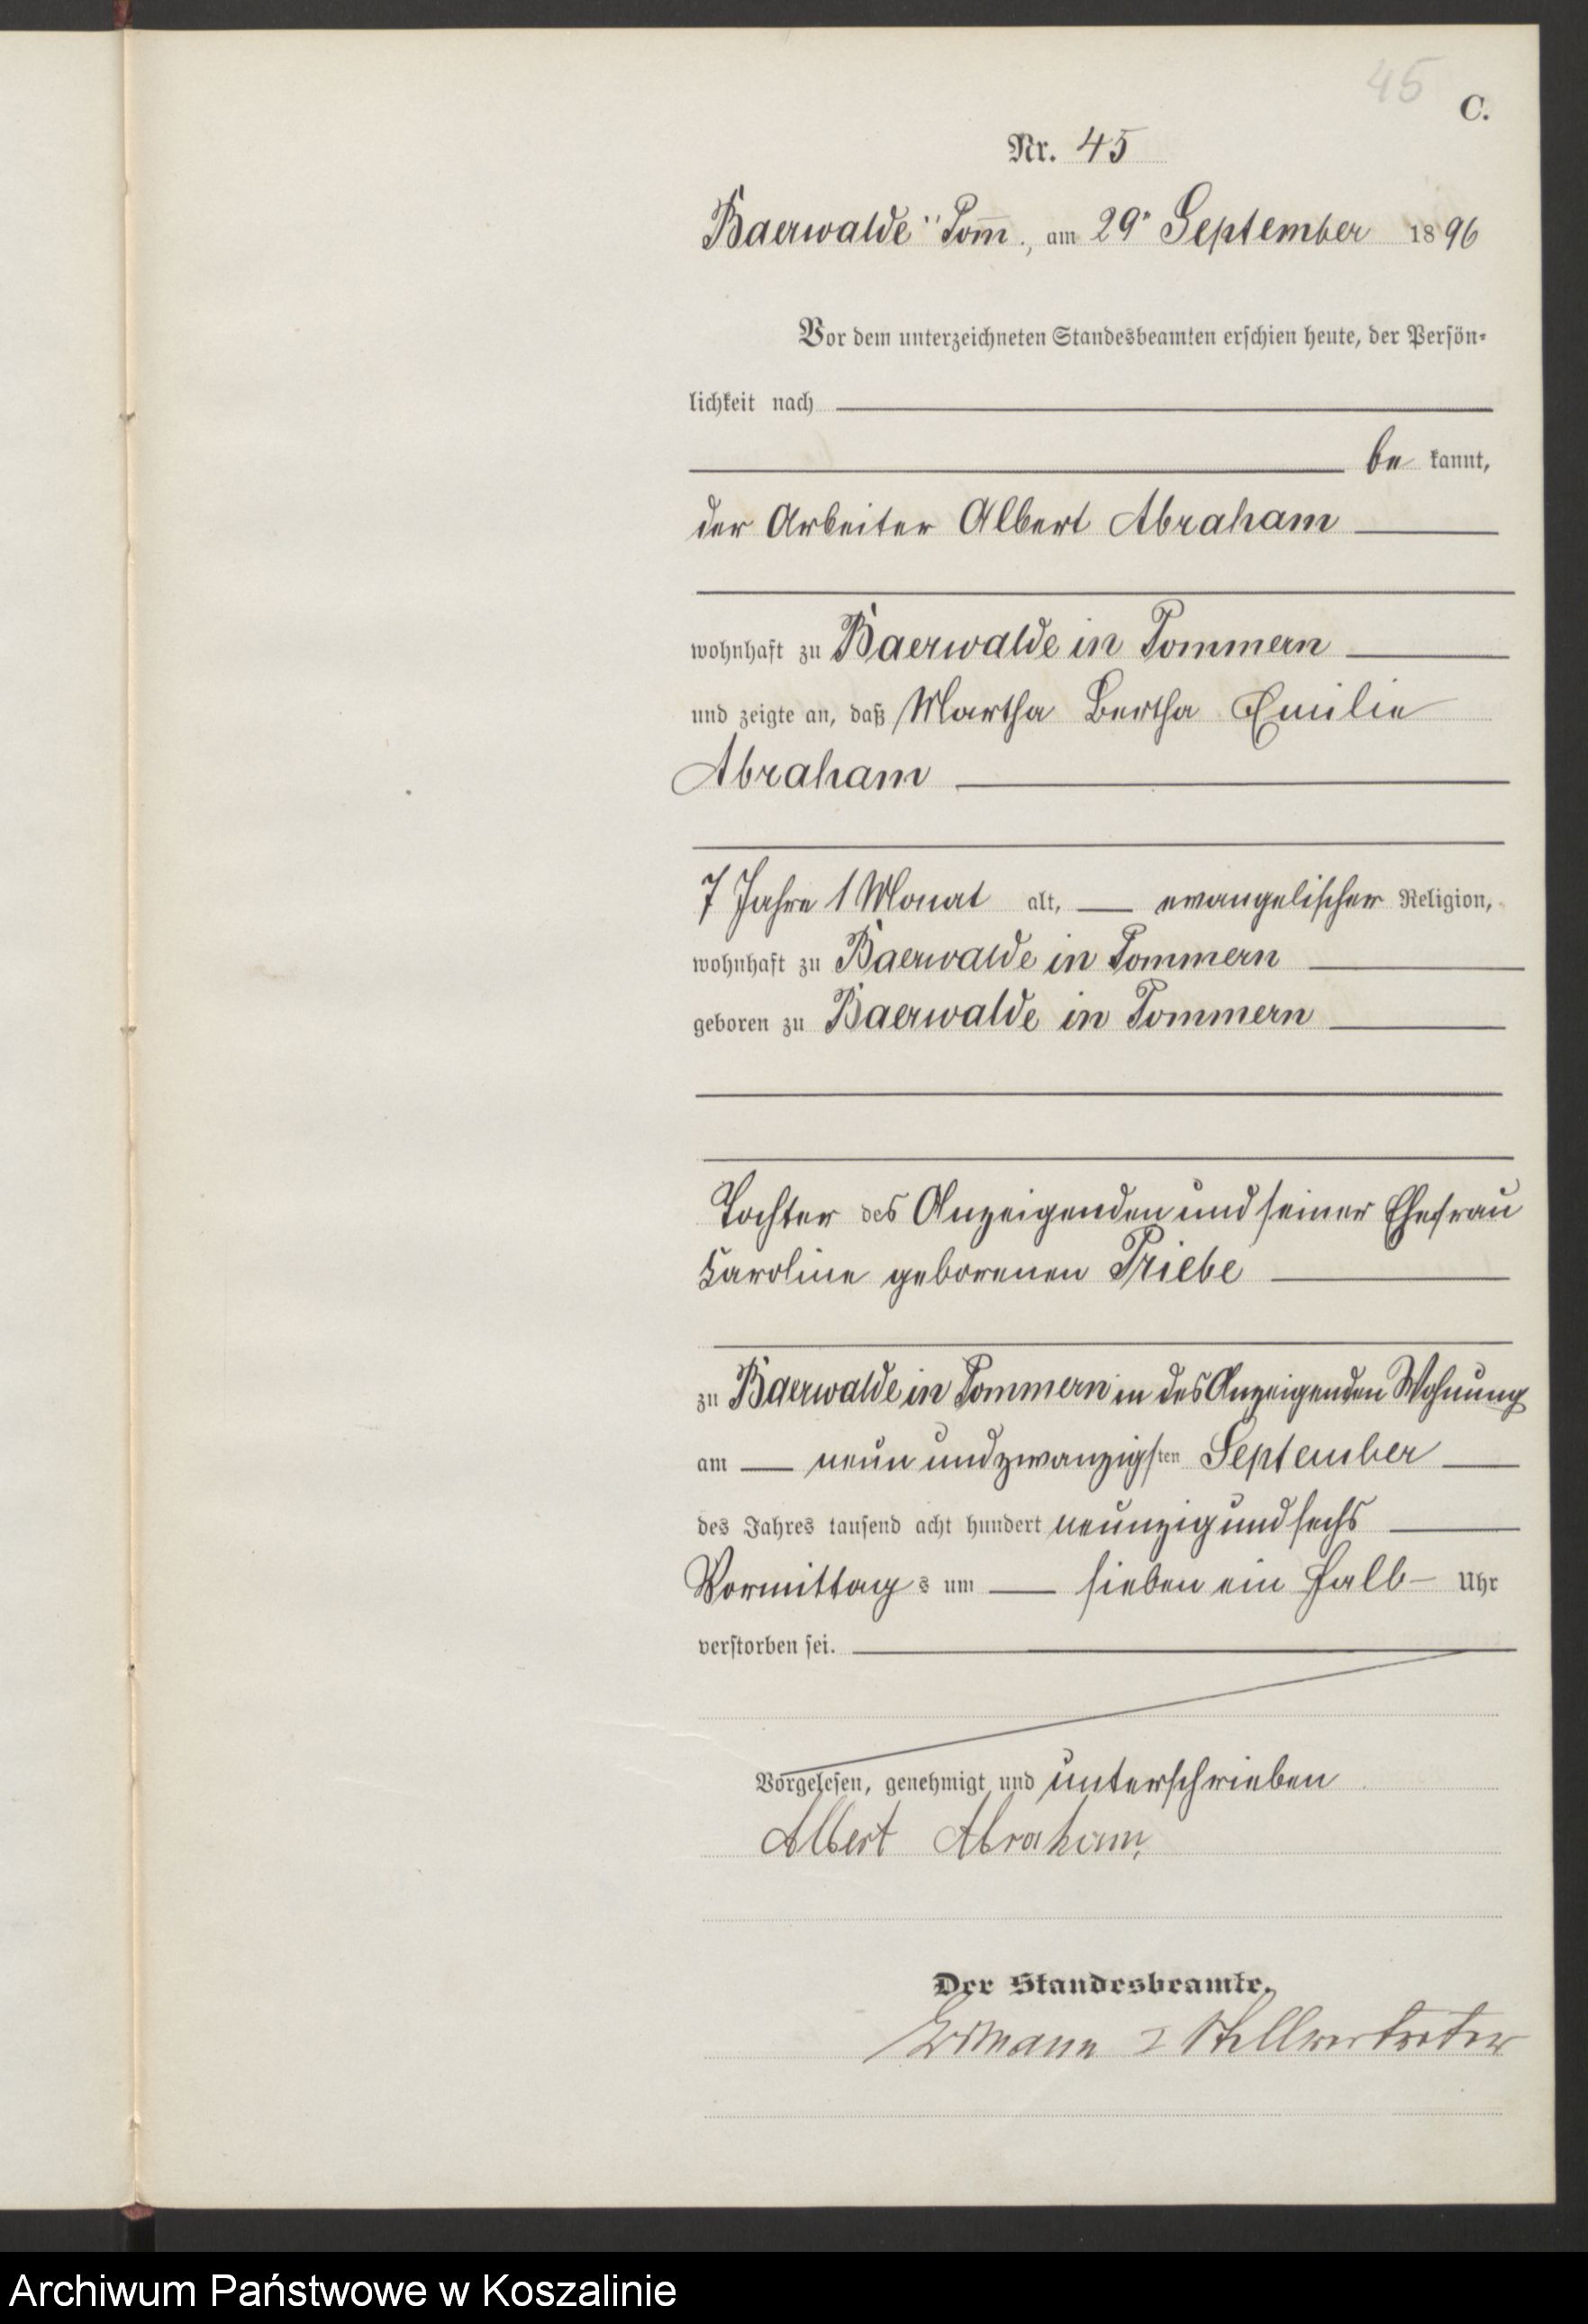 45
C.
Nr. 45
Baerwalde i/Pom̅., am 29. September 1896
Vor dem unterzeichneten Standesbeamten erschien heute, der Persön-
lichkeit nach
be kannt,
der Arbeiter Albert Abraham
wohnhaft zu Baerwalde in Pommern
und zeigte an, daß Martha Bertha Emilie
Abraham
7 Jahre 1 Monat alt, evangelischer Religion,
wohnhaft zu Baerwalde in Pommern
geboren zu Baerwalde in Pommern
Tochter des Anzeigenden und seiner Ehefrau
Karoline geborenen Priebe
zu Baerwalde in Pommern in des Anzeigenden Wohnung
am neun und zwanzigsten September
des Jahres tausend acht hundert neunzig und sechs
Vormittags um sieben ein halb Uhr
verstorben sei.
Vorgelesen, genehmigt und unterschrieben
Albert Abraham
Der Standesbeamte.
Stellvertreter
Archiwum Państwowe w Koszalinie